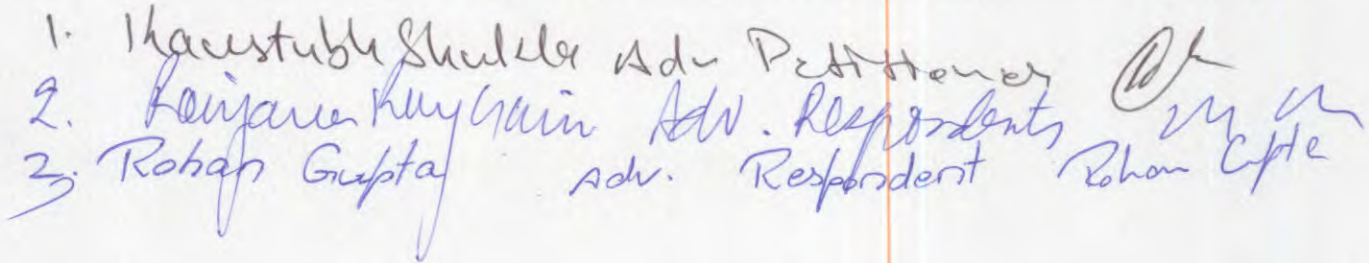 1. Kaustubh Shukla Adv Petitioner
2. Adv. Respondents
3. Rohan Gupta Adv. Respondent Rohan Gupta